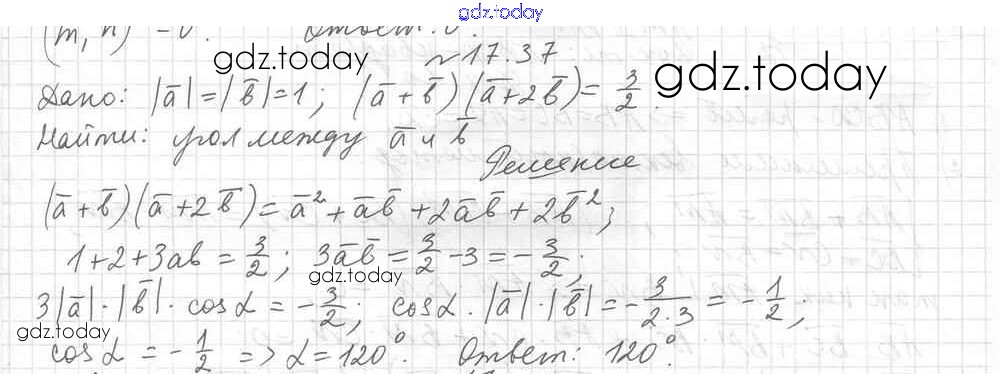 gdz.today
(m, n) = 0. Ответ: 0.
gdz.today
№17.37
gdz.today
Дано: |a̅| = |b̅| = 1; (a̅ + b̅)(a̅ + 2b̅) = 3/2.
Найти: угол между a̅ и b̅
Решение
(a̅ + b̅)(a̅ + 2b̅) = a̅² + a̅b̅ + 2a̅b̅ + 2b̅²;
1 + 2 + 3ab = 3/2; 3a̅b̅ = 3/2 - 3 = -3/2;
gdz.today
3|a̅|·|b̅|·cosα = -3/2; cosα·|a̅|·|b̅| = -3/(2·3) = -1/2;
gdz.today
cosα = -1/2 => α = 120°. Ответ: 120°.